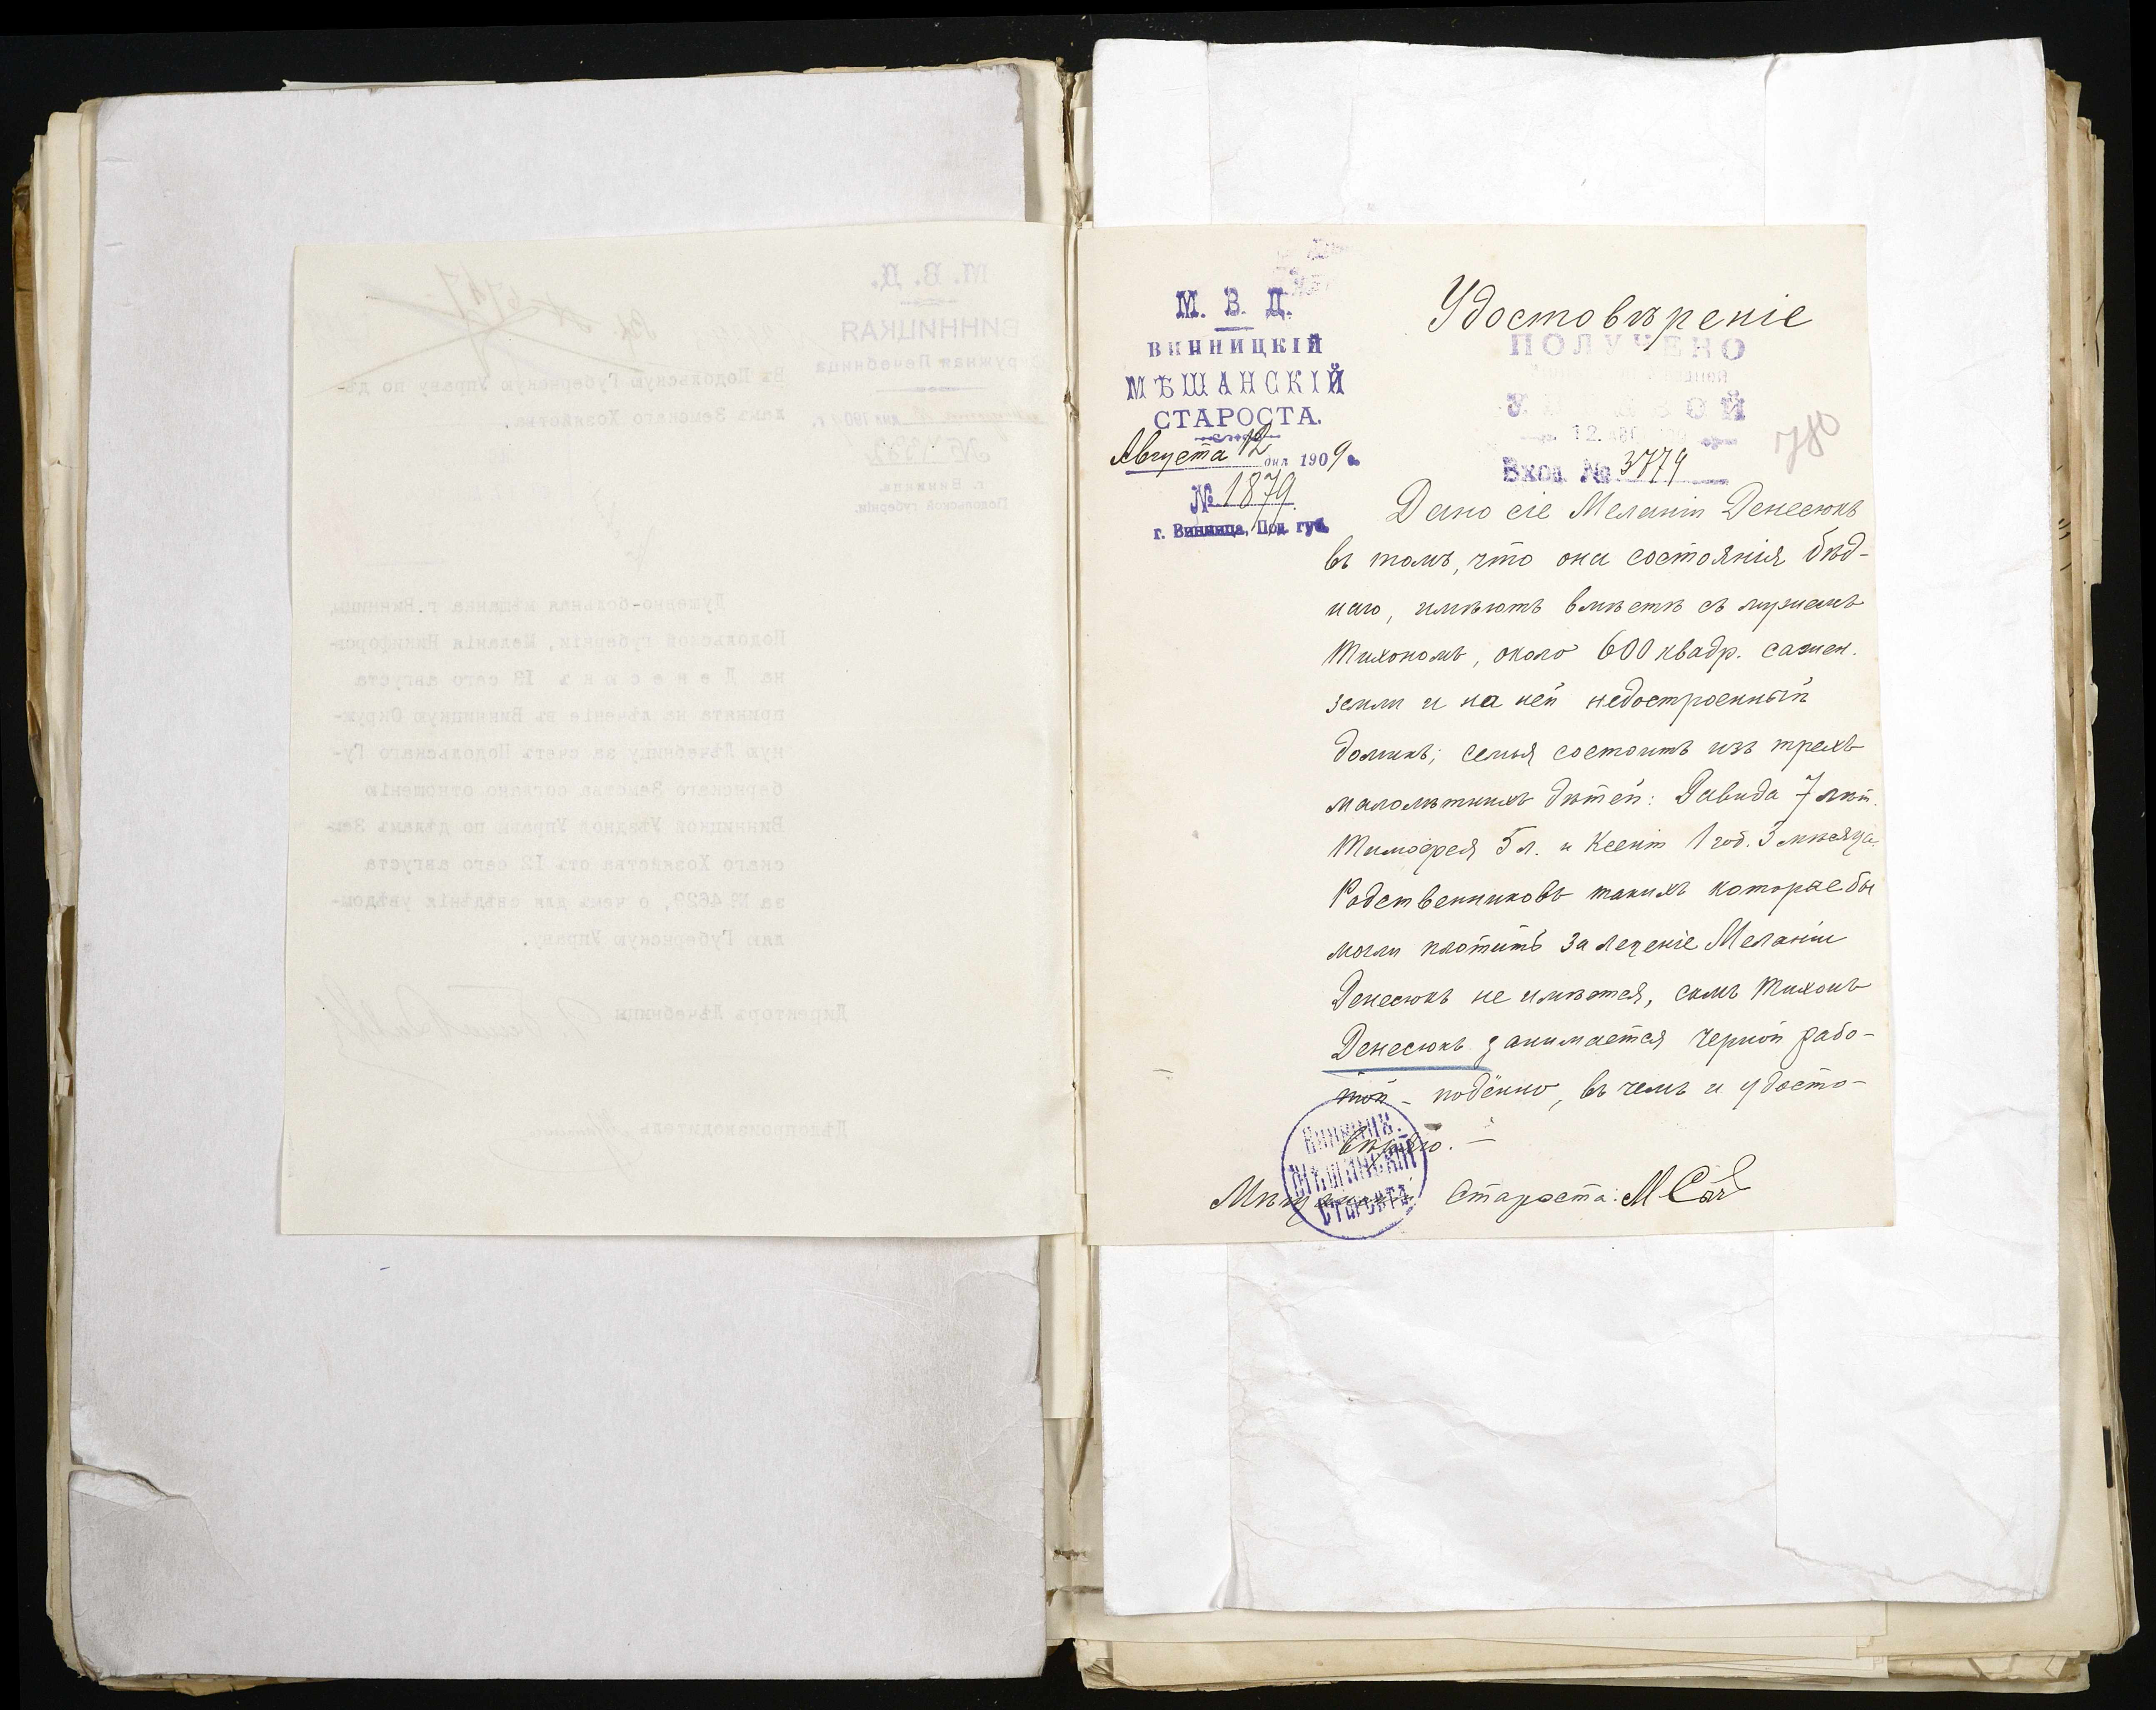 М. В. Д.
ВИННИЦКІЙ
МѢЩАНСКІЙ
СТАРОСТА.
Августа 12 дня 1909 г.
№ 1879
г. Винница, Под. губ.
Удостовѣреніе
ПОЛУЧЕНО
12. АВГ
Вход. № 3779
780
Дано сіе Меланіи Денесюкъ
въ томъ, что она состоянія бѣд-
наго, имѣютъ вмѣстѣ съ мужемъ
Тихономъ, около 600 квадр. сажен.
земли и на ней недостроенный
домикъ; семья состоитъ изъ трехъ
малолѣтнихъ дѣтей: Давида 7 лѣт.
Тимофея 5 л. и Ксеніи 1 год. 3 мѣсяца.
Родственниковъ такихъ которые бы
могли платить за леченіе Меланіи
Денесюкъ не имѣется, самъ Тихонъ
Денесюкъ занимается черной рабо-
той - подённо, въ чемъ и удосто-
вѣряю. —
Винницк.
МѢЩАНСКІЙ
СТАРОСТА
Мѣщанскій Староста:
М. В. Д.
ВИННИЦКАЯ
Окружная Лечебница
дня 190 г.
г. Винница,
Подольской губерніи.
Въ Подольскую Губернскую Управу по дѣ-
ламъ Земскаго Хозяйства.
Душевно-больная мѣщанка г. Винницы,
Подольской губерніи, Меланія Никифоров-
на Денесюкъ 13 сего августа
принята на лѣченіе въ Винницкую Окруж-
ную Лѣчебницу за счетъ Подольскаго Гу-
бернскаго Земства согласно отношенію
Винницкой Уѣздной Управы по дѣламъ Зем-
скаго Хозяйства отъ 12 сего августа
за № 4629, о чемъ для свѣдѣнія увѣдом-
ляю Губернскую Управу.
Директоръ Лѣчебницы
Дѣлопроизводитель